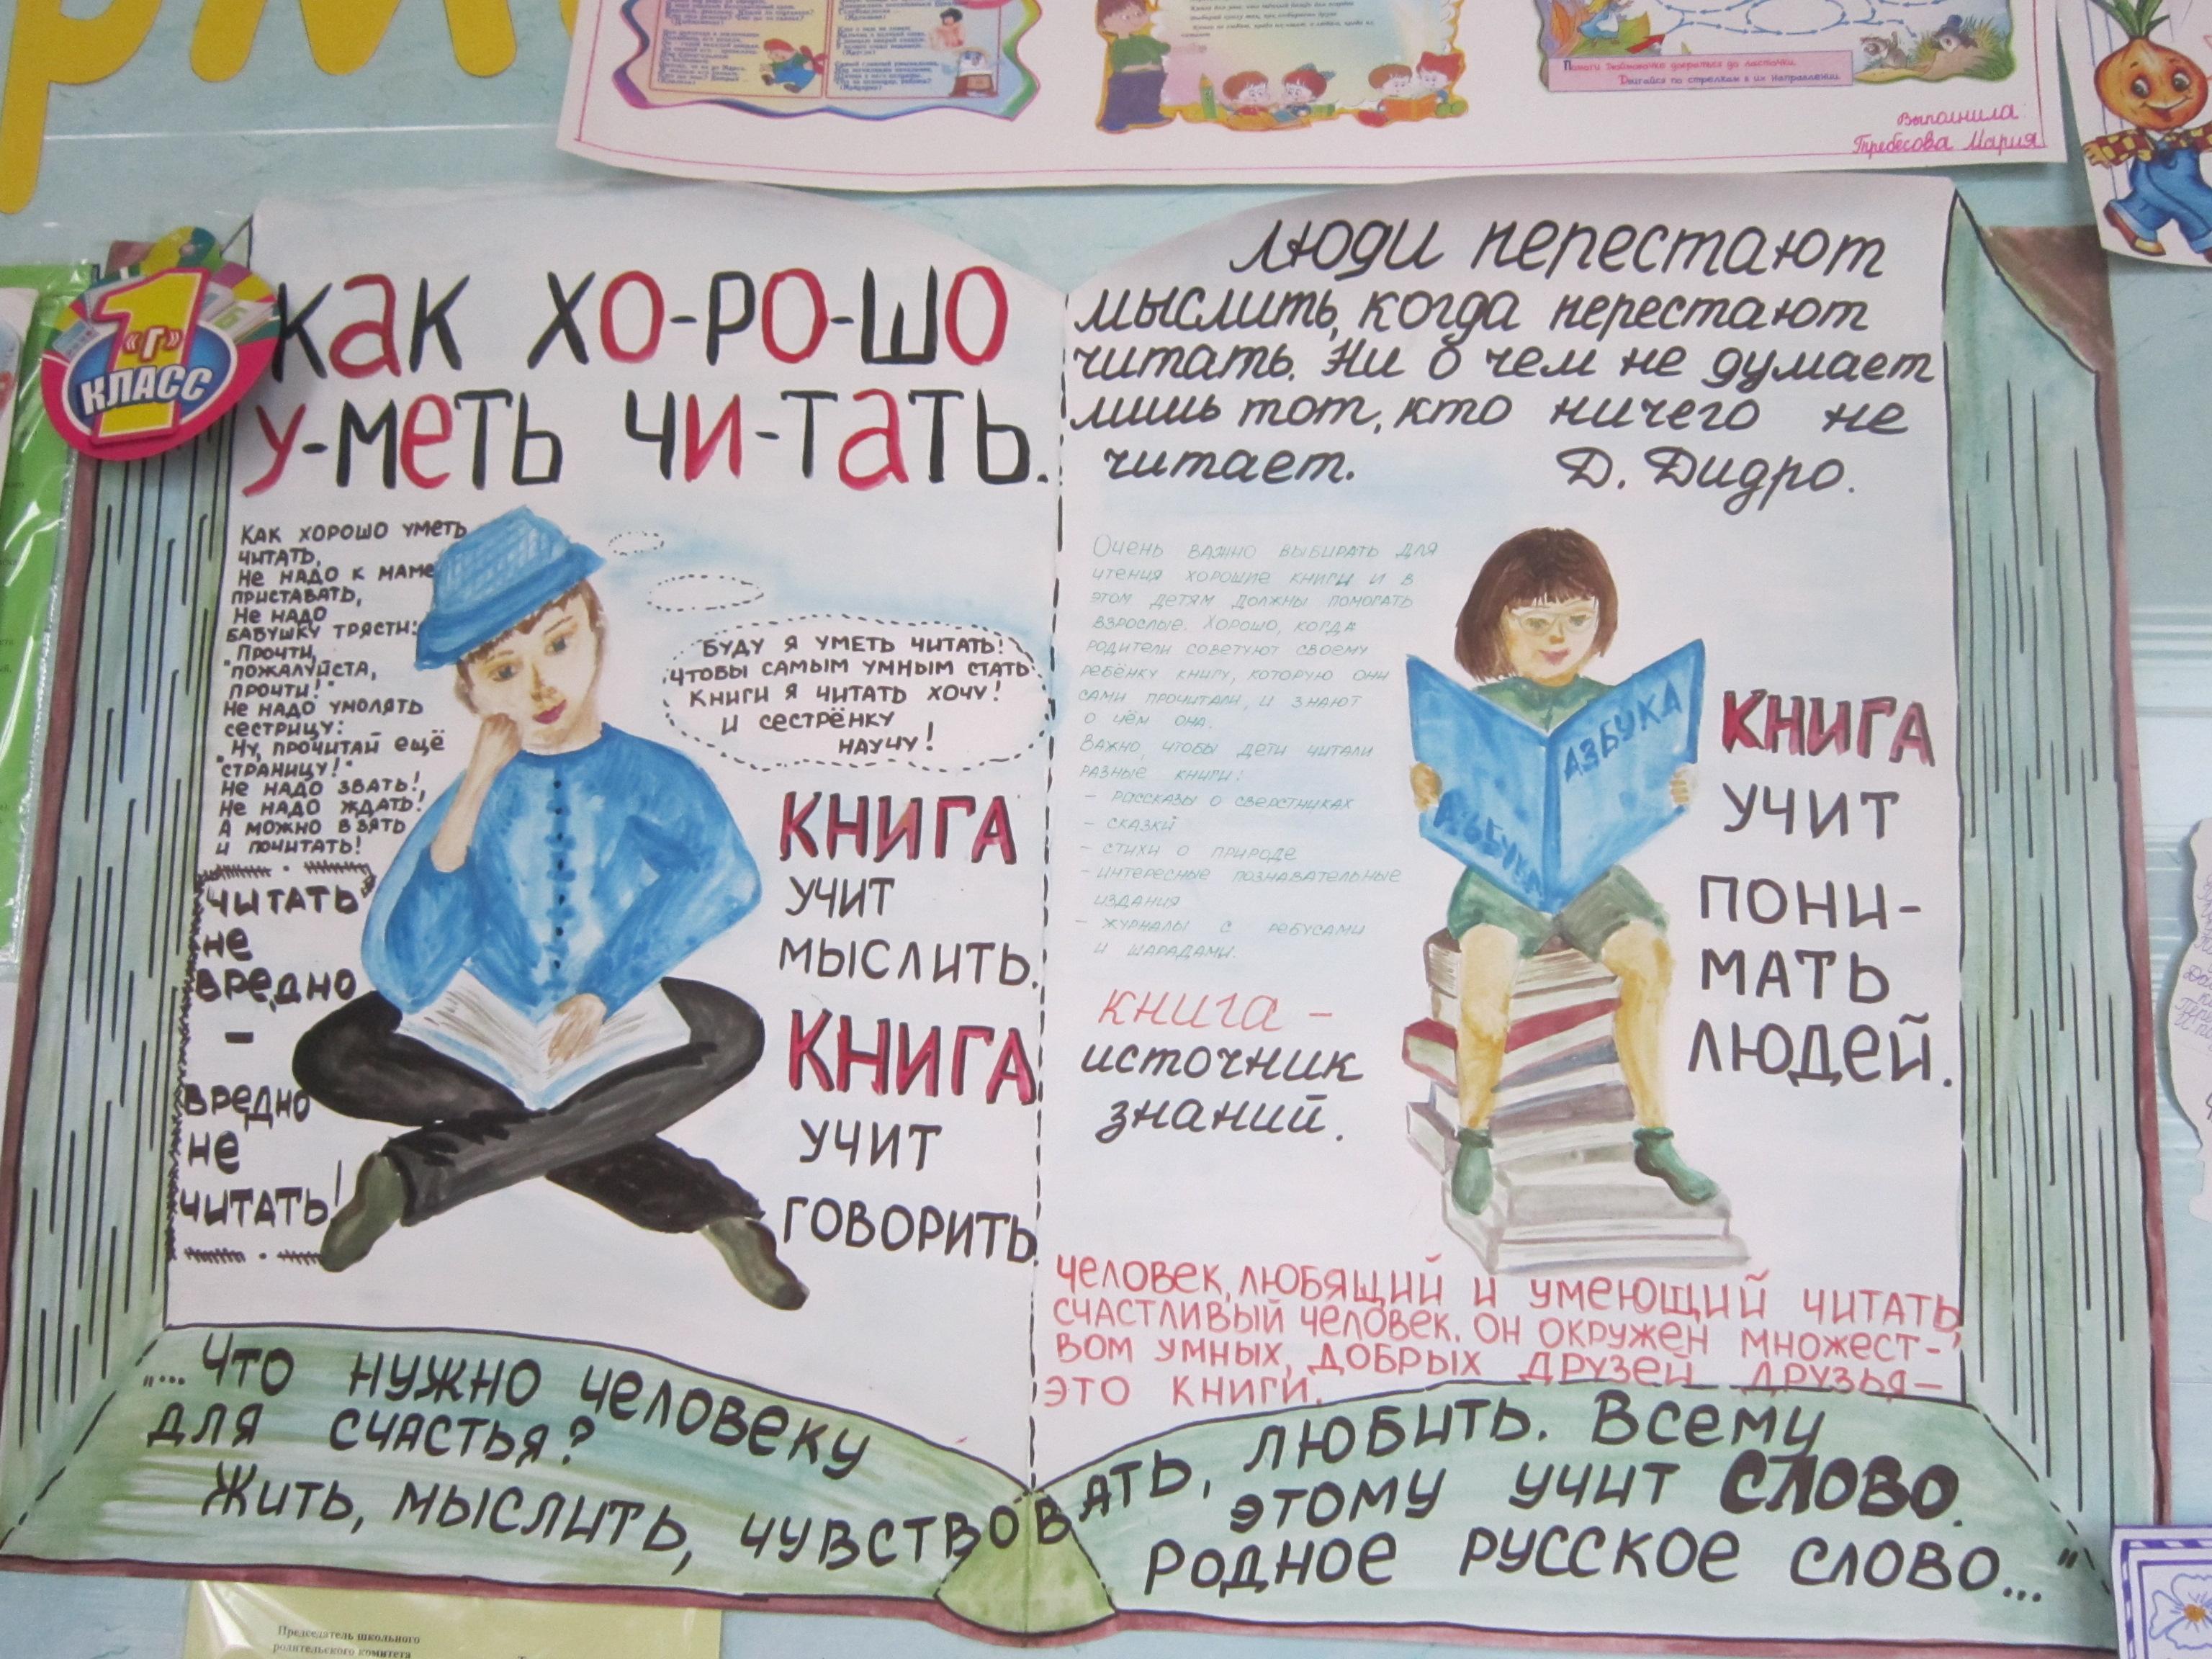 Помоги Дюймовочке добраться до ласточки.
Двигайся по стрелкам в их направлении.
Выполнила
Требесова Мария
1
«Г»
КЛАСС
Как хо-ро-шо
у-меть чи-тать.
Как хорошо уметь
читать,
Не надо к маме
приставать,
Не надо
бабушку трясти:
"Прочти,
пожалуйста,
прочти!"
Не надо умолять
сестрицу:
"Ну, прочитай ещё
страницу!"
Не надо звать!
Не надо ждать!
А можно взять
и почитать!
Читать
не
вредно
-
вредно
не
читать!
Буду я уметь читать!
Чтобы самым умным стать
Книги я читать хочу!
и сестрёнку
научу!
КНИГА
учит
мыслить.
КНИГА
учит
говорить
Люди перестают
мыслить, когда перестают
читать. Ни о чем не думает
лишь тот, кто ничего не
читает. Д. Дидро.
Очень важно выбирать для
чтения хорошие книги и в
этом детям должны помогать
взрослые. Хорошо, когда
родители советуют своему
ребёнку книгу, которую они
сами прочитали, и знают
о чём она.
Важно, чтобы дети читали
разные книги:
- рассказы о сверстниках
- сказки
- стихи о природе
- интересные познавательные
издания
- журналы с ребусами
и шарадами.
АЗБУКА
АЗБУКА
КНИГА
учит
пони-
мать
людей.
Книга -
источник
знаний.
Человек, любящий и умеющий читать,
счастливый человек. Он окружен множест-
вом умных, добрых друзей друзья-
это книги.
„...Что нужно человеку
для счастья?
Жить, мыслить, чувствовать, любить. Всему
этому учит слово.
Родное русское слово..."
Председатель школьного
родительского комитета